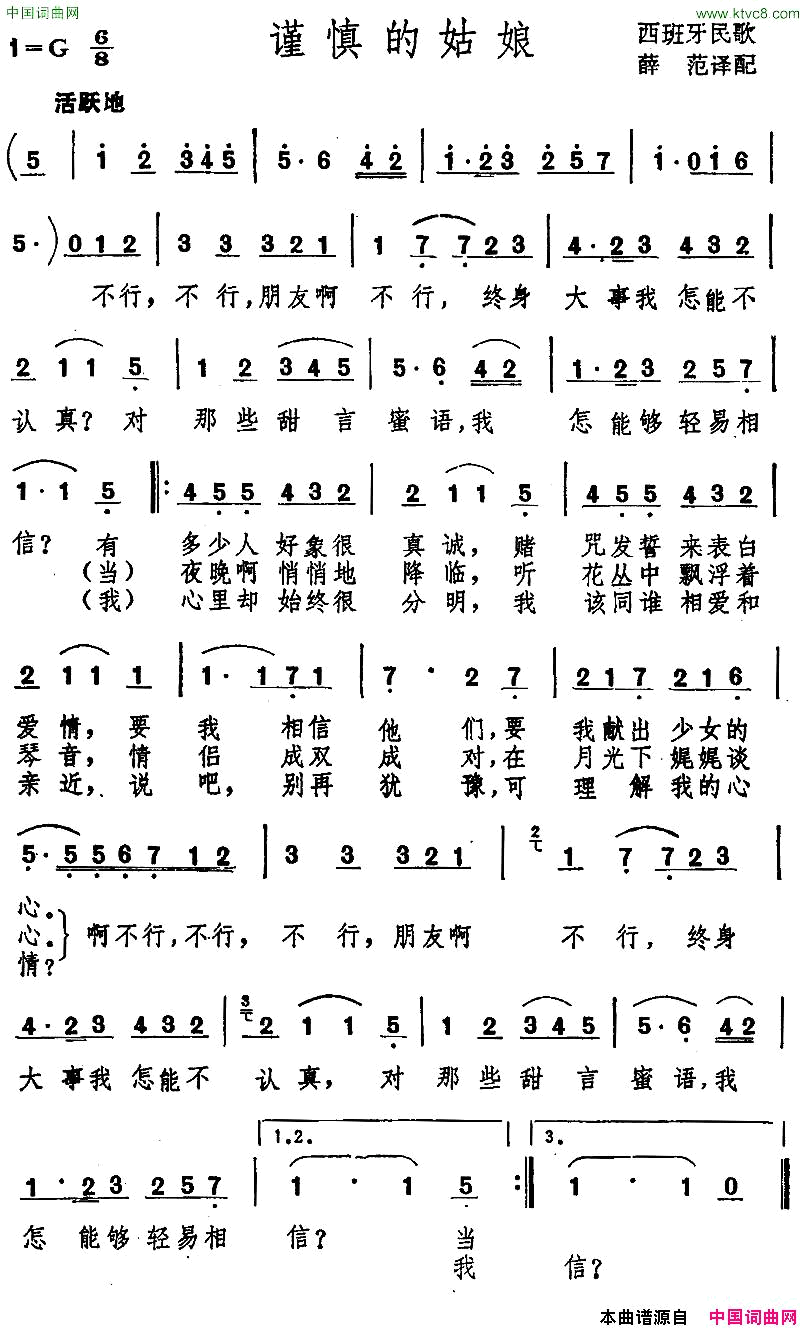 中国词曲网
www.ktvc8.com
1=G 6/8
谨慎的姑娘
西班牙民歌
薛 范译配
活跃地
(5 | 1 2 345 | 5·6 42 | 1·23 257 | 1·016 |
5·)012 | 3 3 321 | 1 7 723 | 4·23 432 |
不行，不行，朋友啊 不行，终身 大事我怎能不
2 11 5 | 1 2 345 | 5·6 42 | 1·23 257 |
认真？对 那些甜言 蜜语，我 怎能够轻易相
1·1 5 ‖: 455 432 | 2 11 5 | 455 432 |
信？ 有 多少人 好象很 真诚，赌 咒发誓 来表白
（当） 夜晚啊 悄悄地 降临，听 花丛中 飘浮着
（我） 心里却 始终很 分明，我 该同谁 相爱和
2 11 1 | 1·171 | 7·2 7 | 217 216 |
爱情，要 我 相信 他 们，要 我献出 少女的
琴音，情 侣 成双 成 对，在 月光下 娓娓谈
亲近，说 吧，别再 犹 豫，可 理 解 我的心
5·5567 12 | 3 3 321 | 2 1 7 723 |
心。
心。 啊不行，不行， 不 行，朋友啊 不 行，终身
情？
4·23 432 | 3 2 1 1 5 | 1 2 345 | 5·6 42 |
大事我 怎能不 认真，对 那些甜言 蜜语，我
1.2. 3.
1·23 257 | 1·1 5 :‖ 1·1 0 ‖
怎 能够 轻易相 信？ 当 信？
我
本曲谱源自 中国词曲网